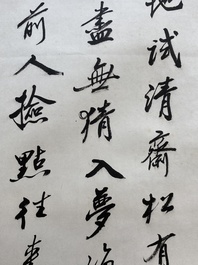 地試清齋松有
盡無猜入夢
前人撿點往